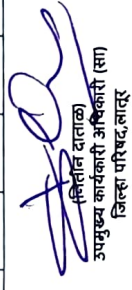 (नितीन दाताळ)
उपमुख्य कार्यकारी अधिकारी (सा)
जिल्हा परिषद,लातूर